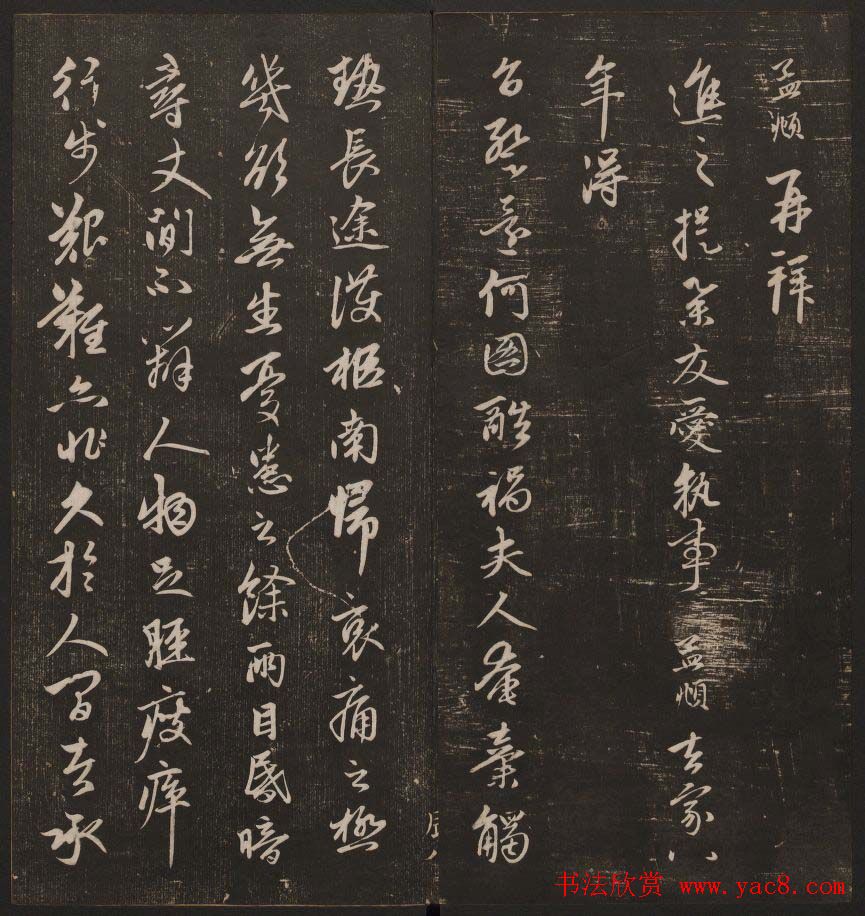 孟頫再拜
進之提舉友愛執事孟頫去家八
年得
旨暫還何圖酷禍夫人奄棄觸
熱長途護柩南歸哀痛之極
幾欲無生憂患之餘兩目昏暗
尋丈間不辨人物足脛瘦瘁
行步艱難亦非久於人間者承
书法欣赏 www.yac8.com